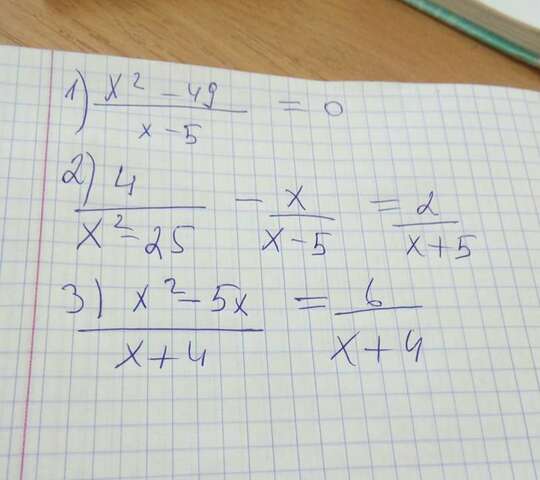 1) (x² - 49)/(x - 5) = 0
2) 4/(x² - 25) - x/(x - 5) = 2/(x + 5)
3) (x² - 5x)/(x + 4) = 6/(x + 4)